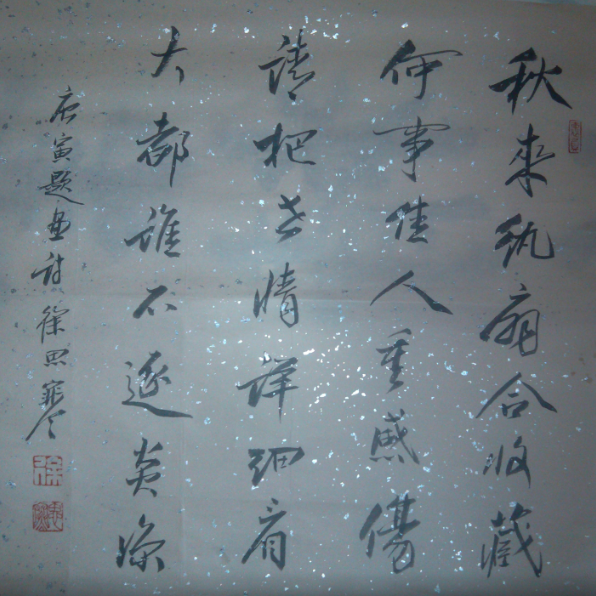 秋来纨扇合收藏
何事佳人重感傷
请把世情详细看
大都谁不逐炎凉
庚寅题画诗徐思